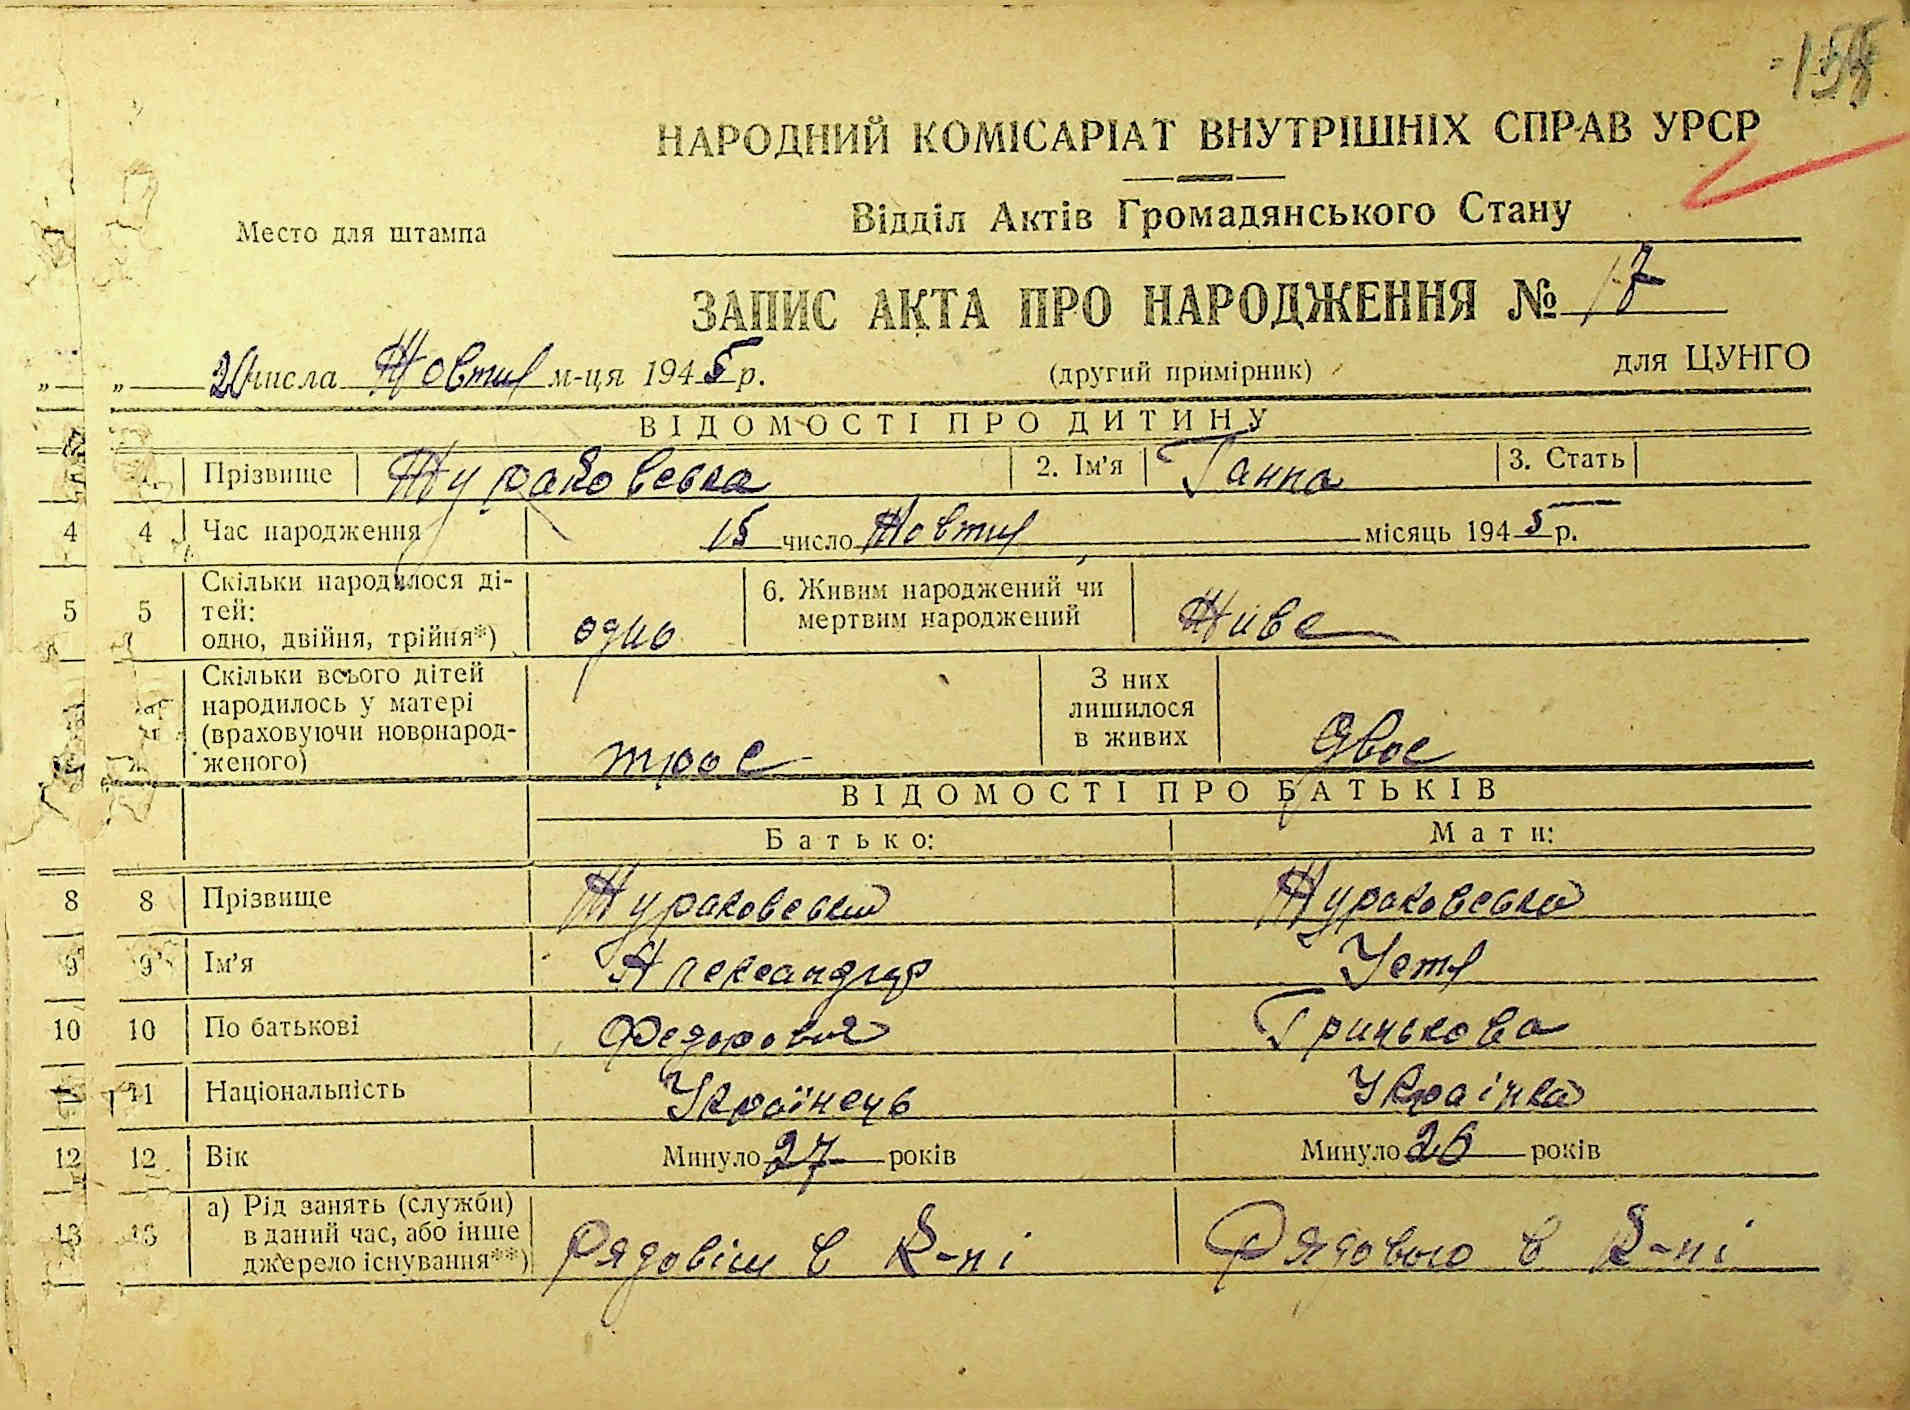 НАРОДНИЙ КОМІСАРІАТ ВНУТРІШНІХ СПРАВ УРСР
Відділ Актів Громадянського Стану
Место для штампа
ЗАПИС АКТА ПРО НАРОДЖЕННЯ № 17
„ „ 20 числа Жовтня м-ця 1945 р. (другий примірник) для ЦУНГО
ВІДОМОСТІ ПРО ДИТИНУ
1. Прізвище Жураковська 2. Ім'я Ганна 3. Стать
4 4 Час народження 15 число Жовтня місяць 1945 р.
5 5 Скільки народилося ді-
тей:
одно, двійня, трійня*) одно 6. Живим народжений чи
мертвим народжений Живе
Скільки всього дітей
народилось у матері
(враховуючи новонарод-
женого) троє З них
лишилося
в живих двоє
ВІДОМОСТІ ПРО БАТЬКІВ
Батько: Мати:
8 8 Прізвище Жураковський Жураковська
9 9 Ім'я Александер Устя
10 10 По батькові Федорович Гринькова
11 11 Національність Українець Українка
12 12 Вік Минуло 27 років Минуло 26 років
13 13 а) Рід занять (служби)
в даний час, або інше
джерело існування**) Рядовім в к-пі Рядовою в к-пі